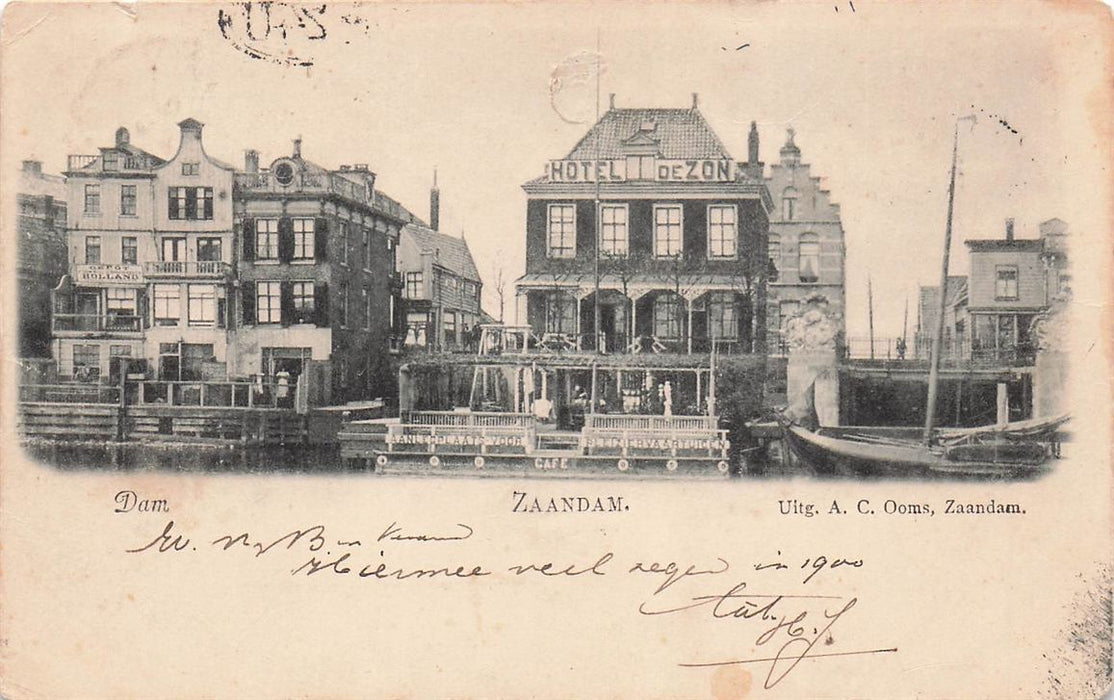 HOTEL DE ZON
DEPOT
HOLLAND
AANLEGPLAATS VOOR
PLEIZIERVAARTUIGEN
CAFÉ
Dam
ZAANDAM.
Uitg. A. C. Ooms, Zaandam.
Hiermee veel zegen in 1900